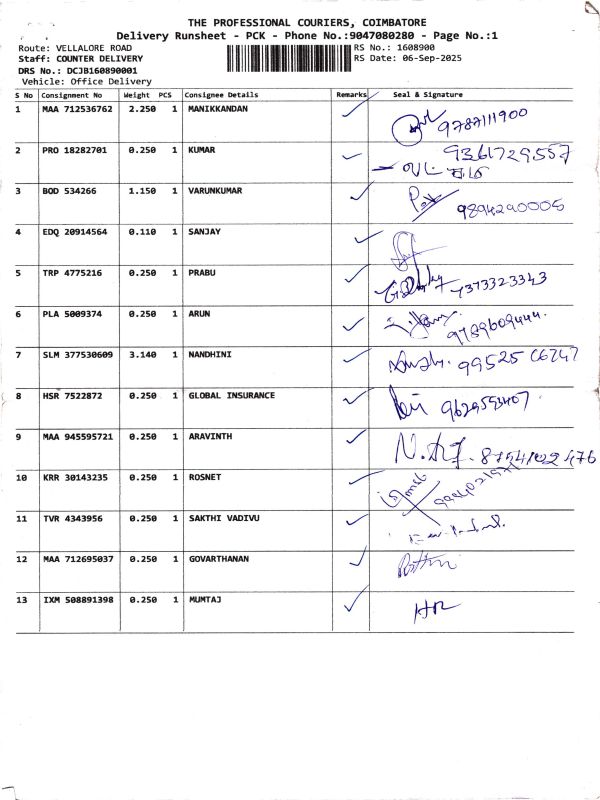 THE PROFESSIONAL COURIERS, COIMBATORE
Delivery Runsheet - PCK - Phone No.:9047080280 - Page No.:1
Route: VELLALORE ROAD RS No.: 1608900
Staff: COUNTER DELIVERY RS Date: 06-Sep-2025
DRS No.: DCJB160890001
Vehicle: Office Delivery
S No Consignment No Weight PCS Consignee Details Remarks Seal & Signature
1 MAA 712536762 2.250 1 MANIKKANDAN 9787111900
2 PRO 18282701 0.250 1 KUMAR 9361729557
3 BOD 534266 1.150 1 VARUNKUMAR 9894290005
4 EDQ 20914564 0.110 1 SANJAY
5 TRP 4775216 0.250 1 PRABU 7373323343
6 PLA 5009374 0.250 1 ARUN 9789609444
7 SLM 377530609 3.140 1 NANDHINI 99525
8 HSR 7522872 0.250 1 GLOBAL INSURANCE 9629593407
9 MAA 945595721 0.250 1 ARAVINTH
10 KRR 30143235 0.250 1 ROSNET
11 TVR 4343956 0.250 1 SAKTHI VADIVU
12 MAA 712695037 0.250 1 GOVARTHANAN
13 IXM 508891398 0.250 1 MUMTAJ